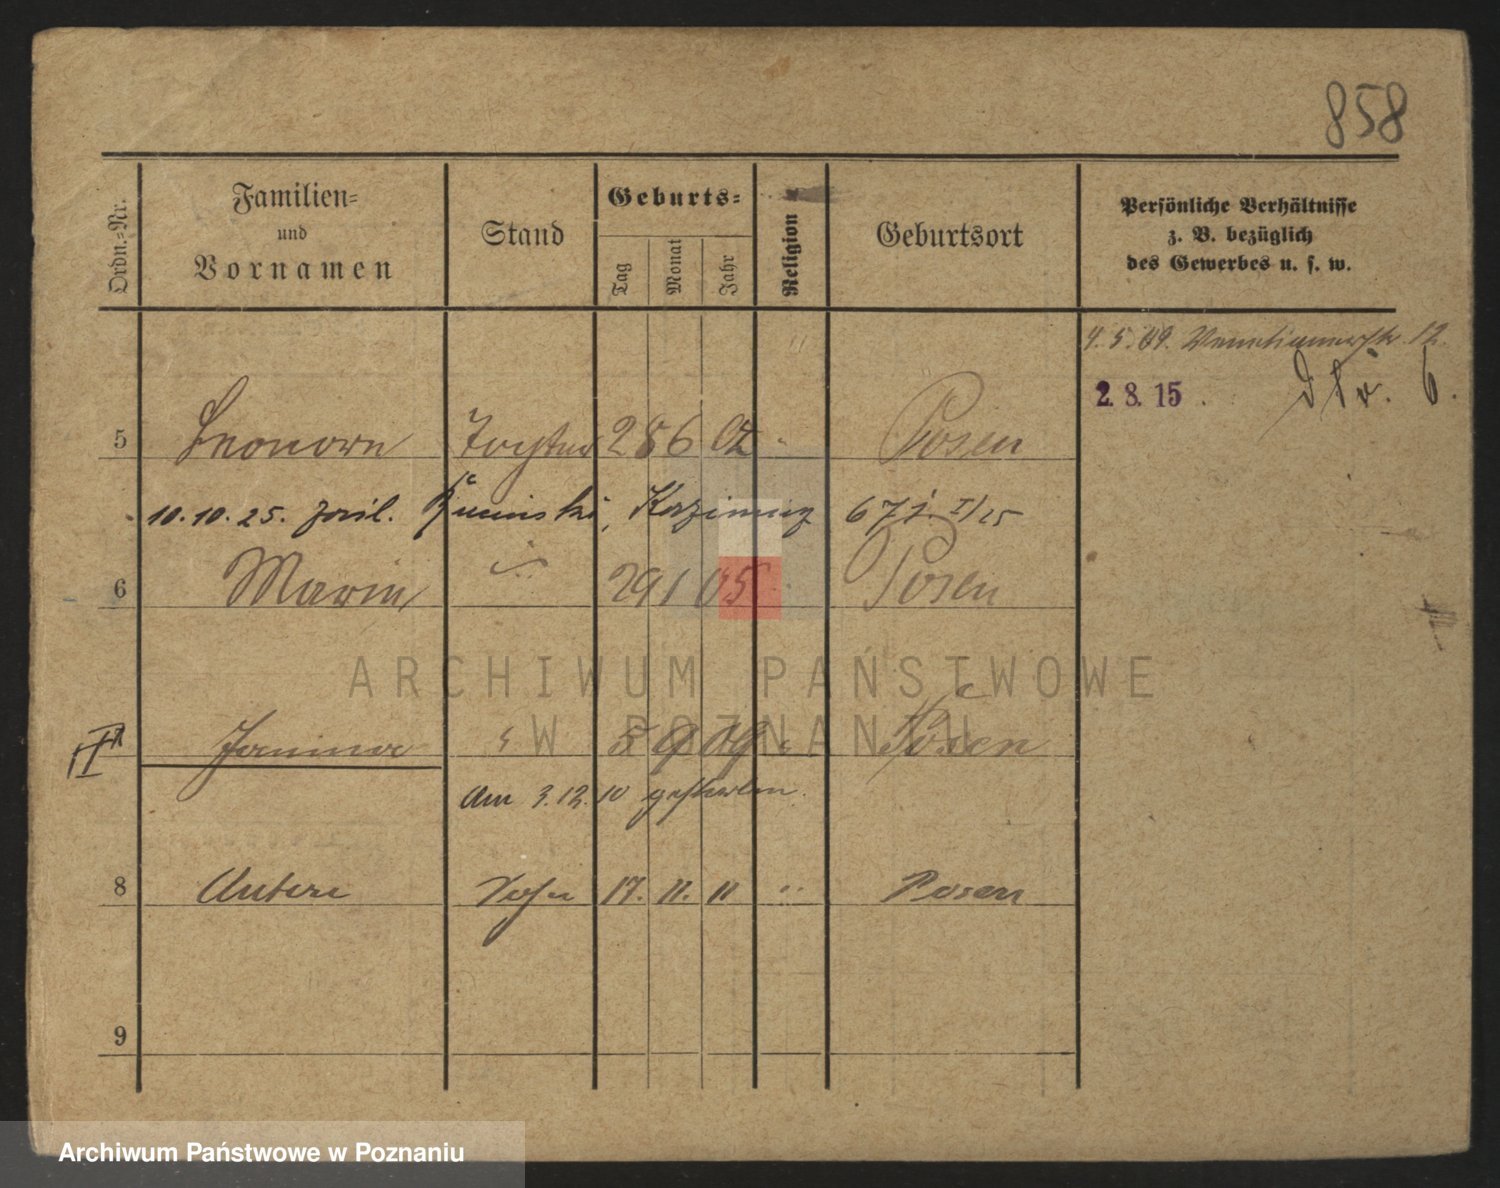 858
Ordn.=Nr.
Familien=
und
Vornamen
Stand
Geburts=
Tag
Monat
Jahr
Religion
Geburtsort
Persönliche Verhältnisse
z. B. bezüglich
des Gewerbes u. s. w.
4. 5. 09. Venetianerstr. 12.
2. 8. 15 dto. 6.
5 Leonore Tochter 28 6 02 " Posen
10.10.25. Kazimierz 671 I/25
6 Maria " 29 1 05 " Posen
Janina " 5 9 09 " Posen
Am 3.12.10 gestorben.
8 Sohn 17. 11. 11 " Posen
9
ARCHIWUM PAŃSTWOWE
W POZNANIU
Archiwum Państwowe w Poznaniu